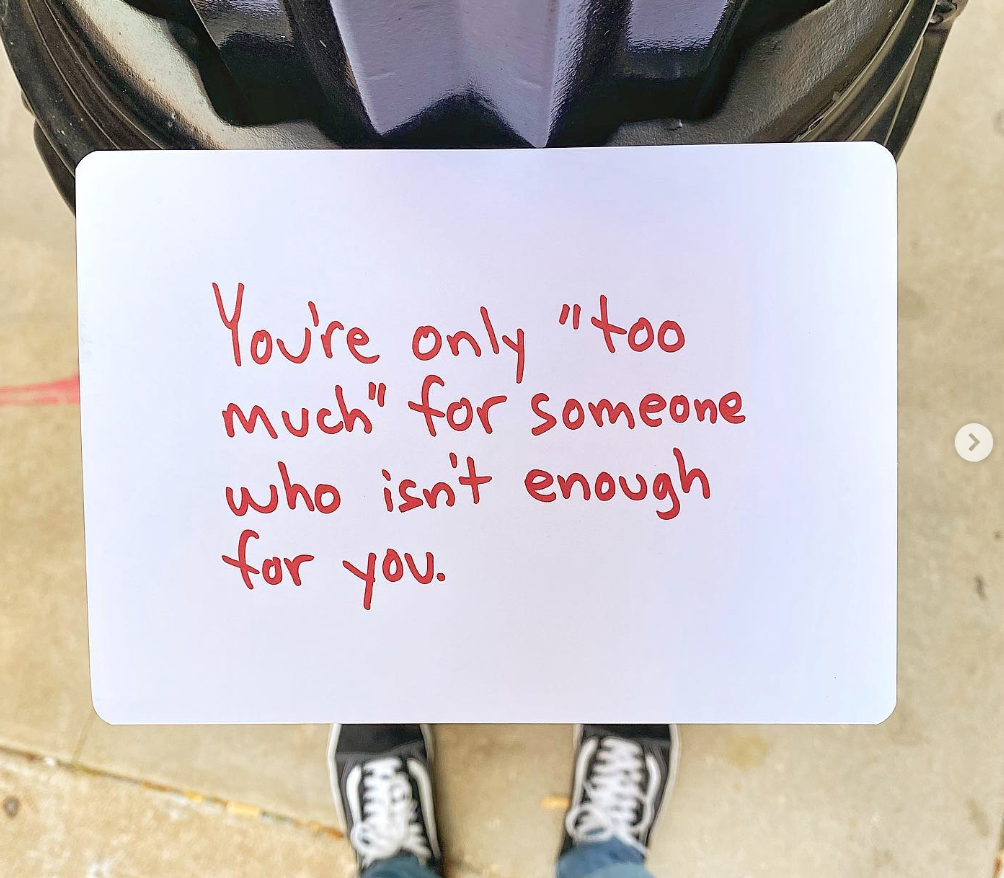 You're only "too
much" for someone
who isn't enough
for you.